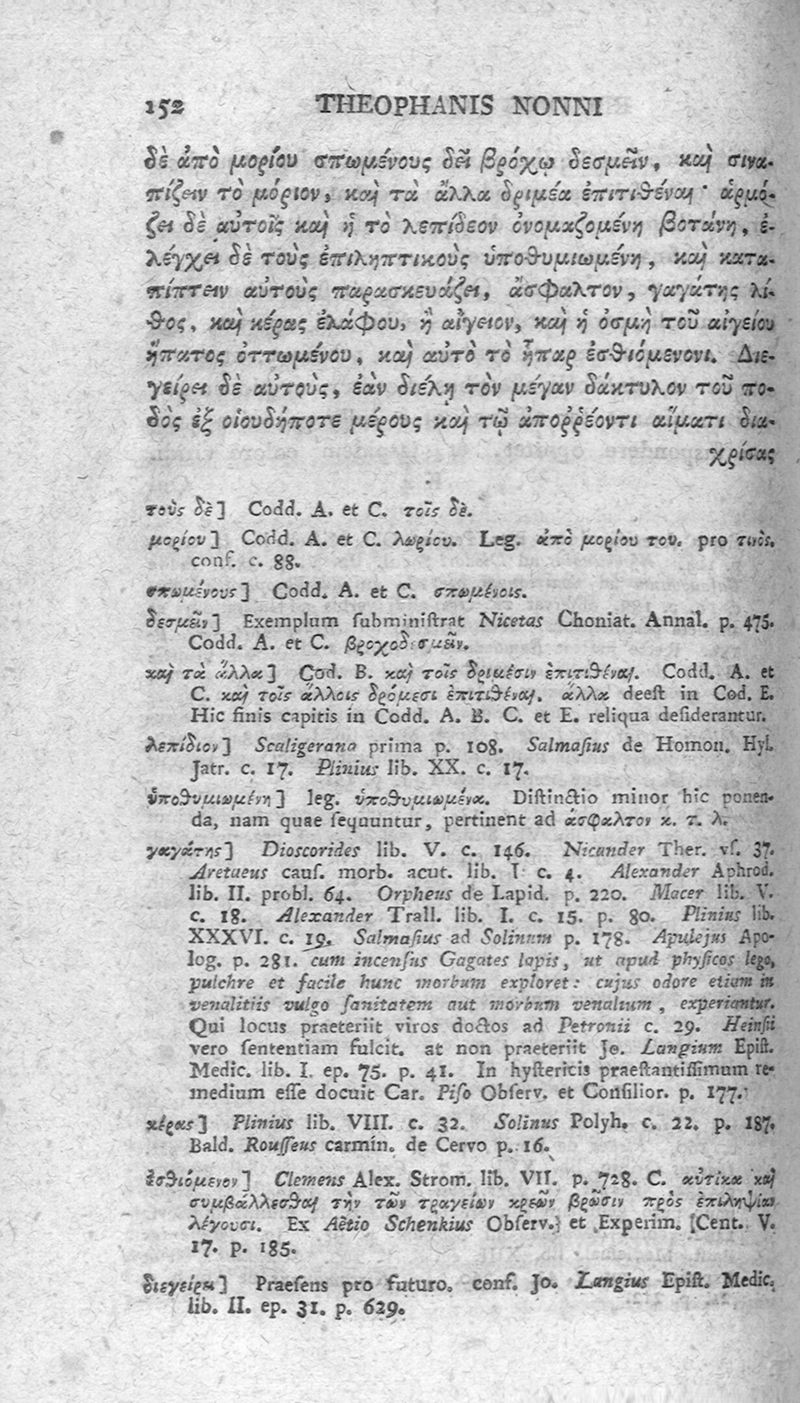 152 THEOPHANIS NONNI
δὲ ἀπὸ μορίου σπωμένους δεῖ βρόχῳ δεσμεῖν, καὶ σινα-
πίζειν τὸ μόριον, καὶ τὰ ἄλλα δριμέα ἐπιτιθέναι· ἁρμό-
ζει δὲ αὐτοῖς καὶ ἡ τὸ λεπίδεον ὀνομαζομένη βοτάνη, ἐ-
λέγχει δὲ τοὺς ἐπιληπτικοὺς ὑποθυμιωμένη, καὶ κατα-
πίπτειν αὐτοὺς παρασκευάζει, ἄσφαλτον, γαγάτης λί-
θος, καὶ κέρας ἐλάφου, ἢ αἴγειον, καὶ ἡ ὀσμὴ τοῦ αἰγείου
ἥπατος ὀττωμένου, καὶ αὐτὸ τὸ ἧπαρ ἐσθιόμενονι. Διε-
γείρει δὲ αὐτοὺς, ἐὰν διέλῃ τὸν μέγαν δάκτυλον τοῦ πο-
δὸς ἐξ οἱουδήποτε μέρους καὶ τῷ ἀποῤῥέοντι αἵματι δια-
χρίσας
τοὺς δὲ] Codd. A. et C. τοῖς δὲ.
μορίου] Codd. A. et C. λωρίου. Leg. ἀπὸ μορίου του. pro τινὸς.
conf. c. 88.
σπωμένους] Codd. A. et C. σπωμένοις.
δεσμεῖν] Exemplum ſubminiſtrat Nicetas Choniat. Annal. p. 475.
Codd. A. et C. βροχοδεσμεῖν.
καὶ τὰ ἄλλα] Cod. B. καὶ τοῖς δριμέσιν ἐπιτιθέναι. Codd. A. et
C. καὶ τοῖς ἄλλοις δρόμεσι ἐπιτιθέναι. ἄλλα deeſt in Cod. E.
Hic finis capitis in Codd. A. B. C. et E. reliqua deſiderantur.
λεπίδιον] Scaligerana prima p. 108. Salmaſius de Homon. Hyl.
Jatr. c. 17. Plinius lib. XX. c. 17.
ὑποθυμιωμένη] leg. ὑποθυμιωμένα. Diſtinctio minor hic ponen-
da, nam quae ſequuntur, pertinent ad ἄσφαλτον κ. τ. λ.
γαγάτης] Dioscorides lib. V. c. 146. Nicander Ther. vſ. 37.
Aretaeus cauſ. morb. acut. lib. I c. 4. Alexander Aphrod.
lib. II. probl. 64. Orpheus de Lapid. p. 220. Macer lib. V.
c. 18. Alexander Trall. lib. I. c. 15. p. 80. Plinius lib.
XXXVI. c. 19. Salmaſius ad Solinum p. 178. Apulejus Apo-
log. p. 281. cum incenſus Gagates lapis, ut apud phyſicos lego,
pulchre et facile hunc morbum exploret: cujus odore etiam in
venalitiis vulgo ſanitatem aut morbum venalium, experiantur.
Qui locus praeteriit viros doctos ad Petronii c. 29. Heinſii
vero ſententiam fulcit. at non praeteriit Jo. Langium Epiſt.
Medic. lib. I. ep. 75. p. 41. In hyſtericis praeſtantiſſimum re-
medium eſſe docuit Car. Piſo Obſerv. et Conſilior. p. 177.
κέρας] Plinius lib. VIII. c. 32. Solinus Polyh. c. 22. p. 187.
Bald. Rouſſeus carmin. de Cervo p. 16.
ἐσθιόμενον] Clemens Alex. Strom. lib. VII. p. 728. C. αὐτίκα καὶ
συμβάλλεσθαι τὴν τῶν τραγείων κρεῶν βρῶσιν πρὸς ἐπιληψίαν
λέγουσι. Ex Aëtio Schenkius Obſerv. et Experim. [Cent. V.
17. p. 185.
διεγείρει] Praeſens pro futuro. conf. Jo. Langius Epiſt. Medic.
lib. II. ep. 31. p. 629.